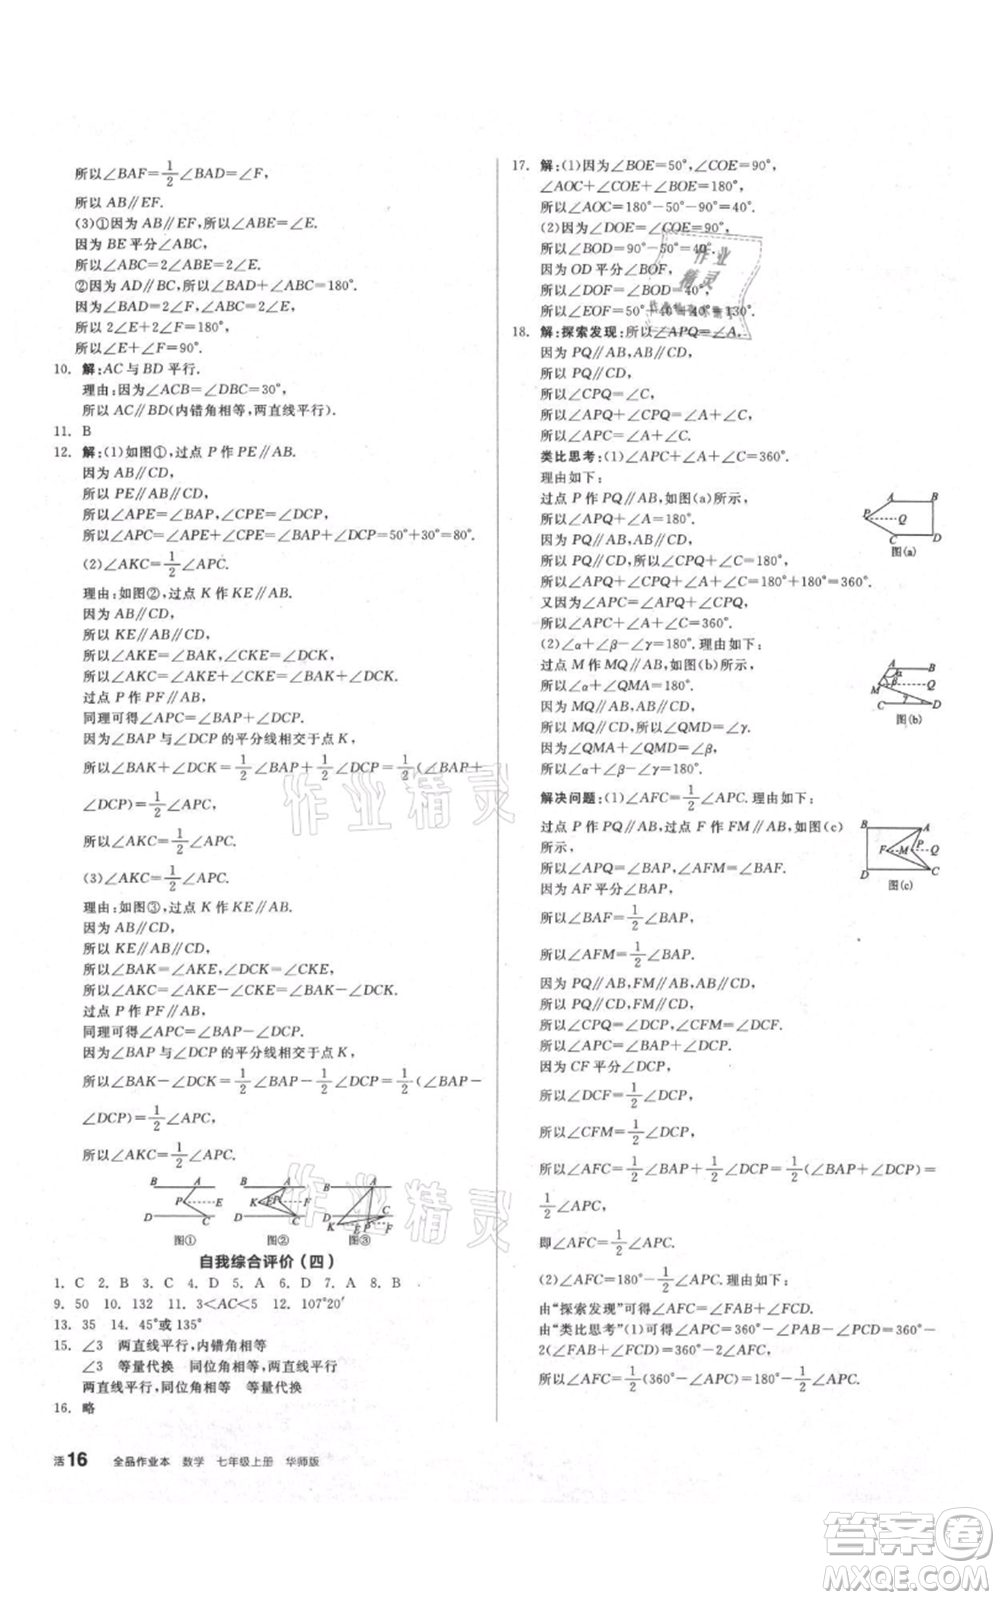 所以∠BAF=1/2∠BAD=∠F,
所以 AB∥EF.
(3)①因为 AB∥EF,所以∠ABE=∠E.
因为 BE 平分∠ABC,
所以∠ABC=2∠ABE=2∠E.
②因为 AD∥BC,所以∠BAD+∠ABC=180°.
所以 2∠E+2∠F=180°,
所以∠E+∠F=90°.
10. 解:AC 与 BD 平行.
理由:因为∠ACB=∠DBC=30°,
所以 AC∥BD(内错角相等,两直线平行).
11. B
12. 解:(1)如图①,过点 P 作 PE∥AB.
因为 AB∥CD,
所以 PE∥AB∥CD,
所以∠APE=∠BAP,∠CPE=∠DCP,
所以∠APC=∠APE+∠CPE=∠BAP+∠DCP=50°+30°=80°.
(2)∠AKC=1/2∠APC.
理由:如图②,过点 K 作 KE∥AB.
因为 AB∥CD,
所以 KE∥AB∥CD,
所以∠AKE=∠BAK,∠CKE=∠DCK,
所以∠AKC=∠AKE+∠CKE=∠BAK+∠DCK.
过点 P 作 PF∥AB,
同理可得∠APC=∠BAP+∠DCP.
因为∠BAP与∠DCP的平分线相交于点 K,
所以∠BAK+∠DCK=1/2∠BAP+1/2∠DCP=1/2(∠BAP+
∠DCP)=1/2∠APC,
所以∠AKC=1/2∠APC.
(3)∠AKC=1/2∠APC.
理由:如图③,过点 K 作 KE∥AB.
因为 AB∥CD,
所以 KE∥AB∥CD,
所以∠BAK=∠AKE,∠DCK=∠CKE,
所以∠AKC=∠AKE-∠CKE=∠BAK-∠DCK.
过点 P 作 PF∥AB,
同理可得∠APC=∠BAP-∠DCP.
因为∠BAP与∠DCP的平分线相交于点 K,
所以∠BAK-∠DCK=1/2∠BAP-1/2∠DCP=1/2(∠BAP-
∠DCP)=1/2∠APC,
所以∠AKC=1/2∠APC.
B A P E D C
图①
B A K E P F D C
图②
B A D C K E P F
图③
自我综合评价(四)
1. C 2. B 3. C 4. D 5. A 6. D 7. A 8. B
9. 50 10. 132 11. 3<AC<5 12. 107°20′
13. 35 14. 45°或135°
15. ∠3 两直线平行,内错角相等
∠3 等量代换 同位角相等
两直线平行,同位角相等 等量代换
16. 略
活16 全品作业本 数学 七年级上册 华师版
17. 解:(1)因为∠BOE=50°,∠COE=90°,
∠AOC+∠COE+∠BOE=180°,
所以∠AOC=180°-50°-90°=40°.
(2)因为∠DOE=∠COE=90°,
所以∠BOD=90°-50°=40°.
因为 OD 平分∠BOF,
所以∠DOF=∠BOD=40°,
所以∠EOF=50°+40°+40°=130°.
18. 解:探索发现:所以∠APQ=∠A,
因为 PQ∥AB,AB∥CD,
所以 PQ∥CD,
所以∠CPQ=∠C,
所以∠APQ+∠CPQ=∠A+∠C,
所以∠APC=∠A+∠C.
类比思考:(1)∠APC+∠A+∠C=360°.
理由如下:
过点 P 作 PQ∥AB,如图(a)所示,
所以∠A+∠APQ=180°.
因为 PQ∥AB,AB∥CD,
所以 PQ∥CD,所以∠CPQ+∠C=180°,
所以∠A+∠APQ+∠CPQ+∠C=180°+180°=360°.
又因为∠APC=∠APQ+∠CPQ,
所以∠APC+∠A+∠C=360°.
A B P Q C D
图(a)
(2)∠α+∠β-∠γ=180°.理由如下:
过点 M 作 MQ∥AB,如图(b)所示,
所以∠α+∠QMA=180°.
因为 MQ∥AB,AB∥CD,
所以 MQ∥CD,所以∠QMD=∠γ.
因为∠QMA+∠QMD=∠β,
所以∠α+∠β-∠γ=180°.
A B α β M Q γ C D
图(b)
解决问题:(1)∠AFC=1/2∠APC.理由如下:
过点 P 作 PQ∥AB,过点 F 作 FM∥AB,如图(c)
所示,
所以∠APQ=∠BAP,∠AFM=∠BAF.
因为 AF 平分∠BAP,
所以∠BAF=1/2∠BAP,
所以∠AFM=1/2∠BAP.
因为 PQ∥AB,FM∥AB,AB∥CD,
所以 PQ∥CD,FM∥CD,
所以∠CPQ=∠DCP,∠CFM=∠DCF.
因为 CF 平分∠DCP,
所以∠DCF=1/2∠DCP,
所以∠CFM=1/2∠DCP,
所以∠AFC=1/2∠BAP+1/2∠DCP=1/2(∠BAP+∠DCP)=
1/2∠APC,
即∠AFC=1/2∠APC.
B A F M P Q D C
图(c)
(2)∠AFC=180°-1/2∠APC.
由“探索发现”可得∠AFC=∠FAB+∠FCD.
由“类比思考”(1)可得∠APC=360°-∠PAB-∠PCD=360°-
2(∠FAB+∠FCD)=360°-2∠AFC,
所以∠AFC=1/2(360°-∠APC)=180°-1/2∠APC.
作业精灵
作业精灵
作业
精灵
答案卷
MXQE.COM